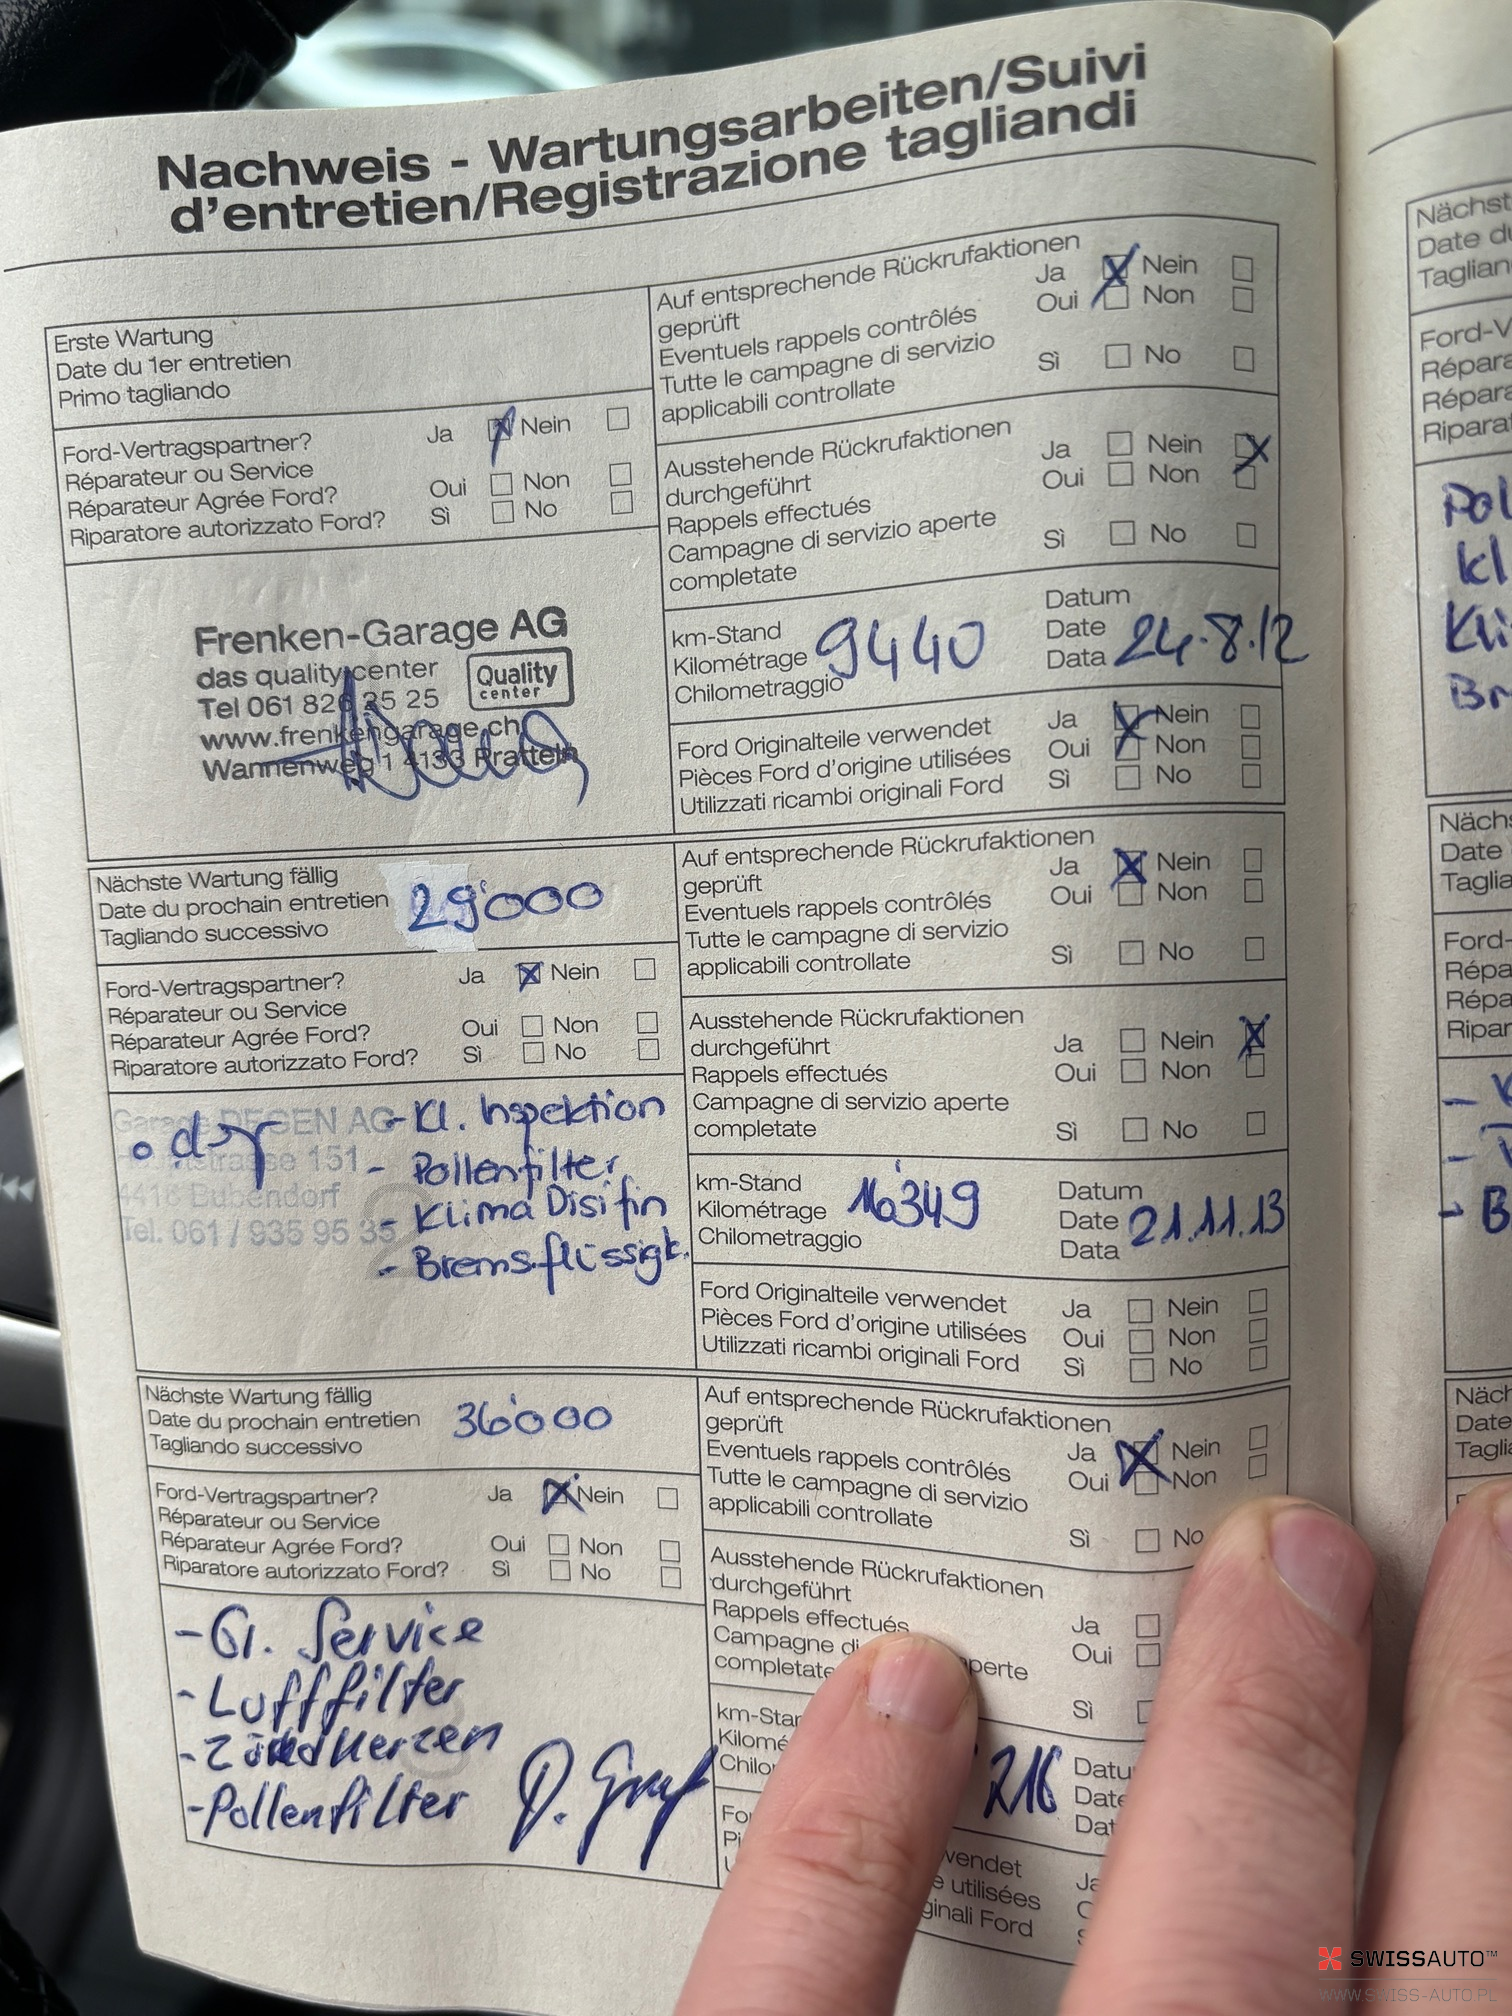 Nachweis - Wartungsarbeiten/Suivi
d'entretien/Registrazione tagliandi
Erste Wartung
Date du 1er entretien
Primo tagliando
Ford-Vertragspartner? Ja Nein
Réparateur ou Service
Réparateur Agrée Ford? Oui Non
Riparatore autorizzato Ford? Sì No
Frenken-Garage AG
das quality center
Quality
center
Tel 061 826 25 25
www.frenkengarage.ch
Wannenweg 1 4133 Pratteln
Auf entsprechende Rückrufaktionen
geprüft Ja Nein
Eventuels rappels contrôlés Oui Non
Tutte le campagne di servizio
applicabili controllate Sì No
Ausstehende Rückrufaktionen Ja Nein
durchgeführt Oui Non
Rappels effectués
Campagne di servizio aperte Sì No
completate
km-Stand
Kilométrage 9440
Chilometraggio
Datum
Date 24.8.12
Data
Ford Originalteile verwendet Ja Nein
Pièces Ford d'origine utilisées Oui Non
Utilizzati ricambi originali Ford Sì No
Nächste Wartung fällig
Date du prochain entretien 29'000
Tagliando successivo
Ford-Vertragspartner? Ja Nein
Réparateur ou Service
Réparateur Agrée Ford? Oui Non
Riparatore autorizzato Ford? Sì No
Garage DEGEN AG
151
4416 Bubendorf
Tel. 061 / 935 95 35
- Kl. Inspektion
- Pollenfilter
- Klima Disifin
- Bremsflüssigk.
Auf entsprechende Rückrufaktionen
geprüft Ja Nein
Eventuels rappels contrôlés Oui Non
Tutte le campagne di servizio
applicabili controllate Sì No
Ausstehende Rückrufaktionen
durchgeführt Ja Nein
Rappels effectués Oui Non
Campagne di servizio aperte
completate Sì No
km-Stand
Kilométrage 16'349
Chilometraggio
Datum
Date 21.11.13
Data
Ford Originalteile verwendet Ja Nein
Pièces Ford d'origine utilisées Oui Non
Utilizzati ricambi originali Ford Sì No
Nächste Wartung fällig
Date du prochain entretien 36'000
Tagliando successivo
Ford-Vertragspartner? Ja Nein
Réparateur ou Service
Réparateur Agrée Ford? Oui Non
Riparatore autorizzato Ford? Sì No
- Gr. Service
- Luftfilter
- Zündkerzen
- Pollenfilter D. Graf
Auf entsprechende Rückrufaktionen
geprüft Ja Nein
Eventuels rappels contrôlés Oui Non
Tutte le campagne di servizio
applicabili controllate Sì No
Ausstehende Rückrufaktionen
durchgeführt Ja
Rappels effectués Oui
Campagne di
completate Sì
216
SWISSAUTO™
WWW.SWISS-AUTO.PL